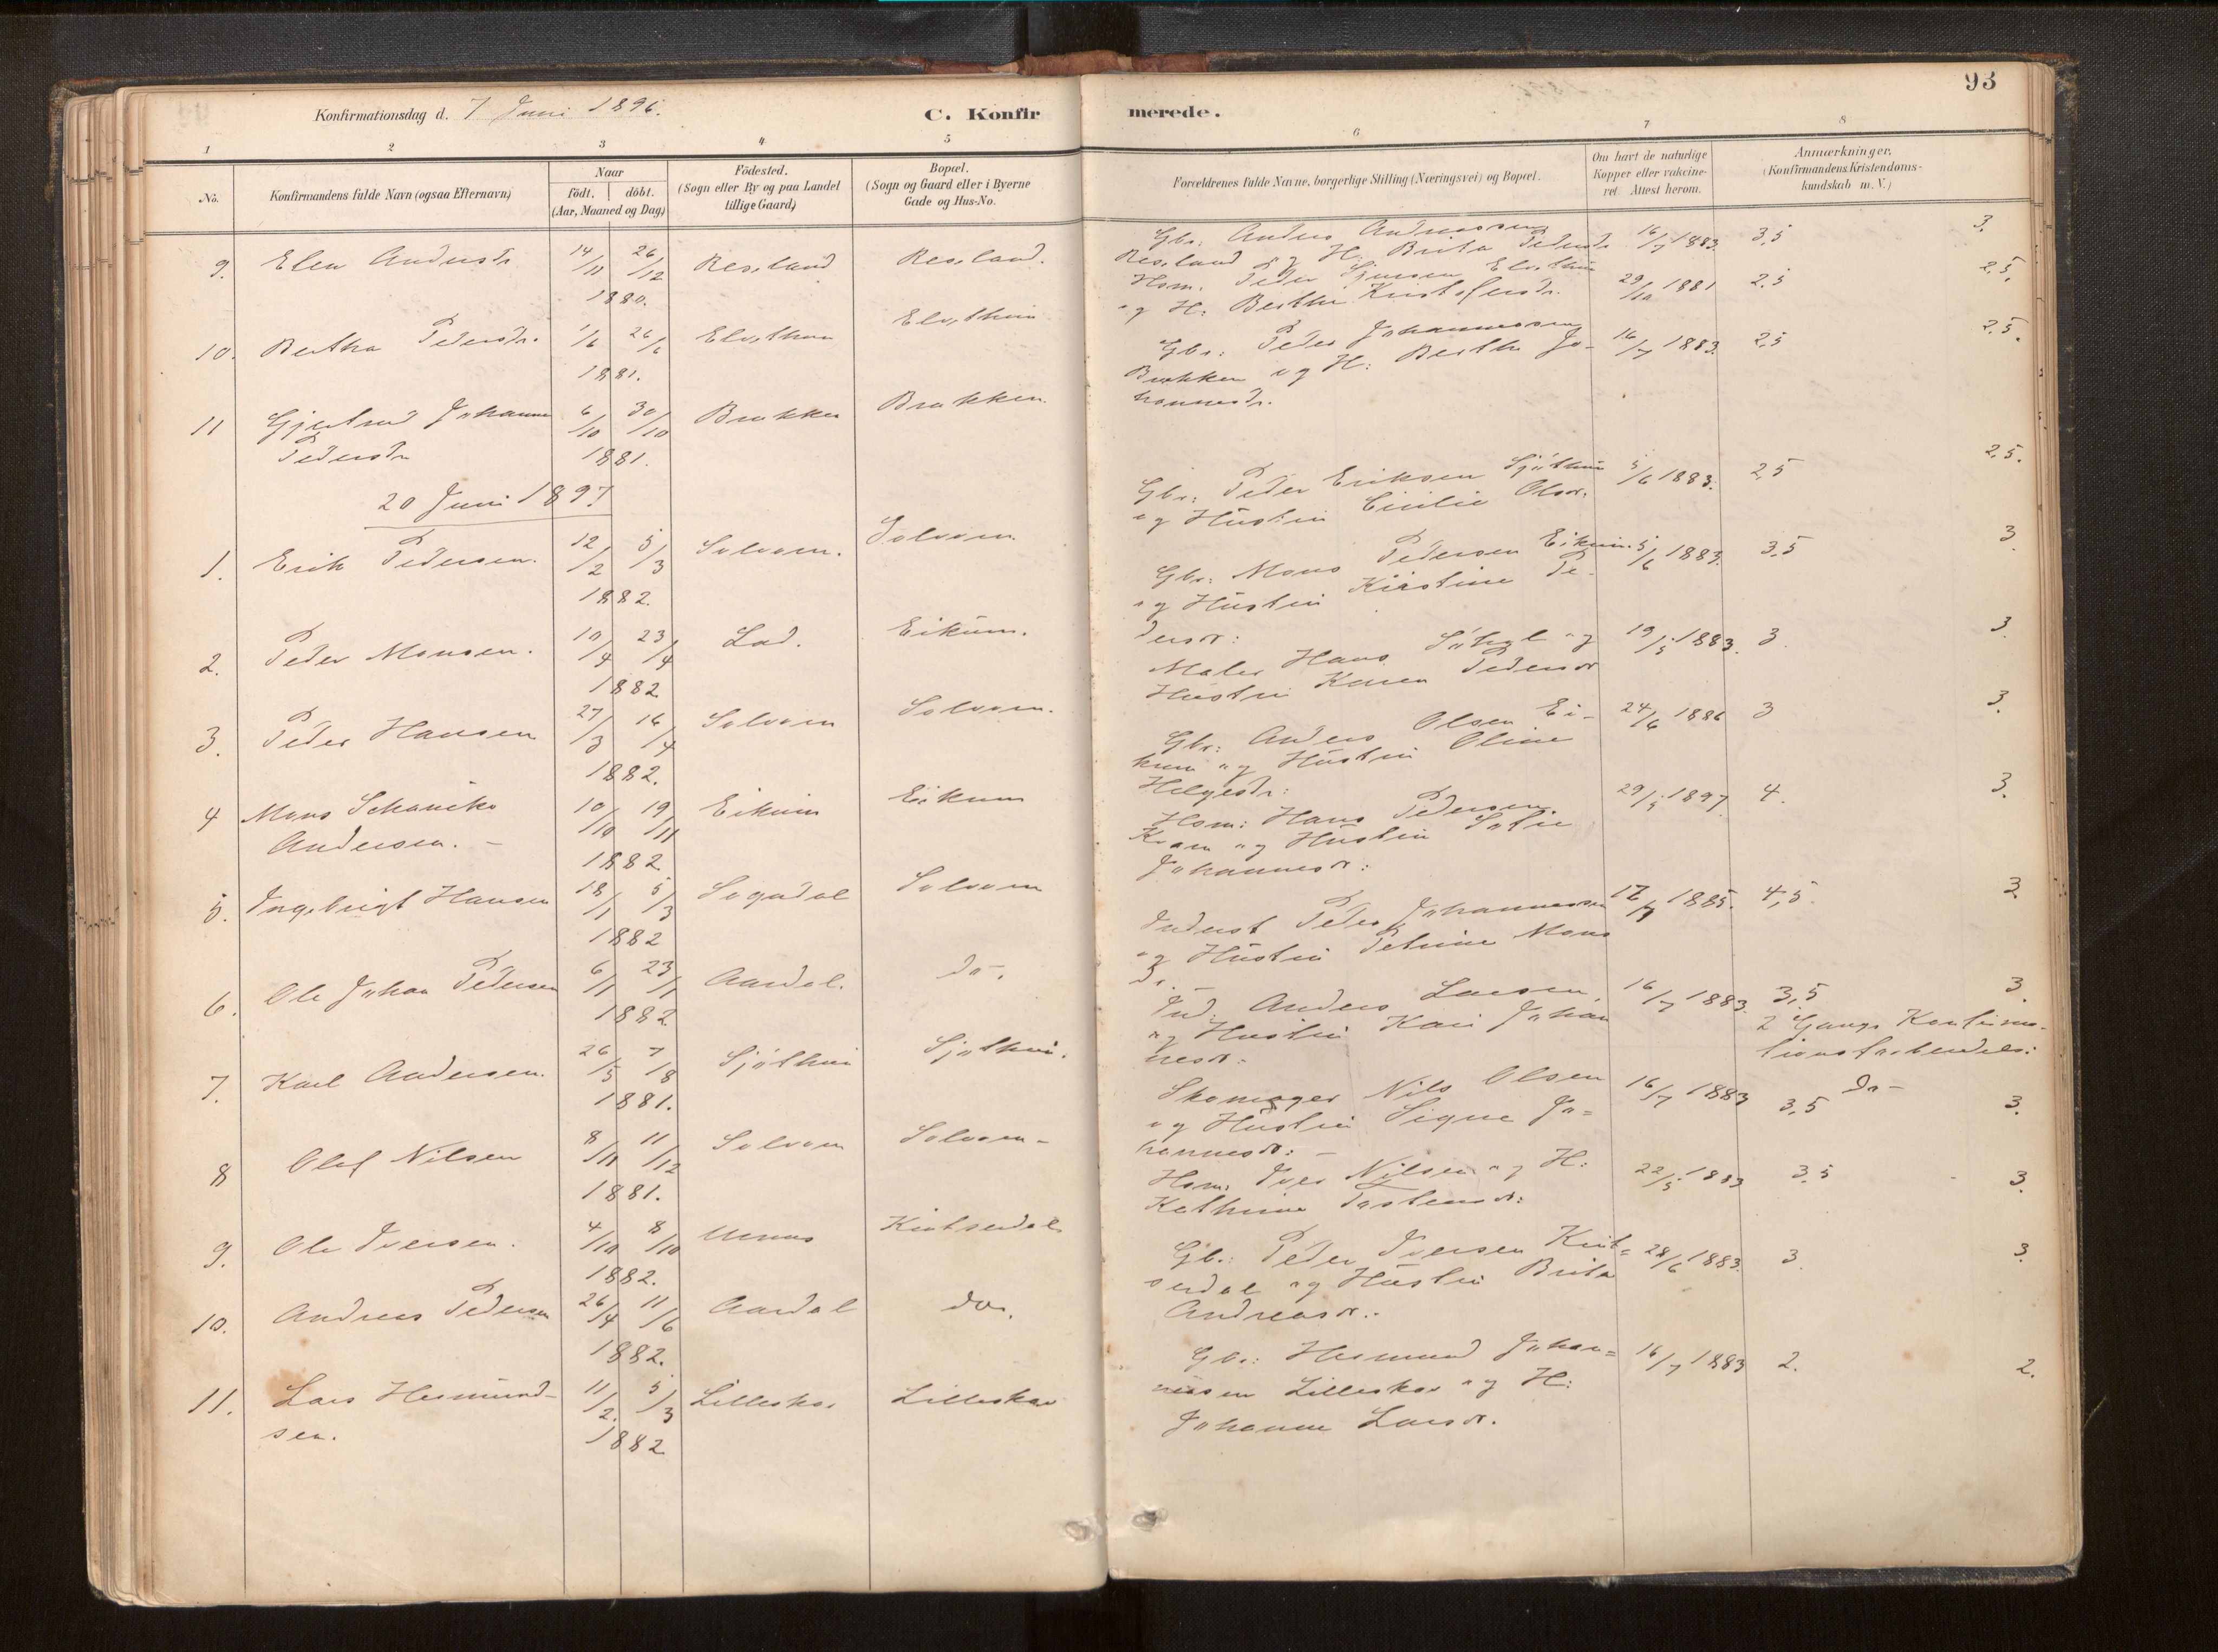 93
Konfirmationsdag d. 7 Juni 1896.
C. Konfirmerede.
1 2 3 4 5 6 7 8
No.
Konfirmandens fulde Navn (ogsaa Efternavn)
Naar
födt. döbt.
(Aar, Maaned og Dag)
Födested.
(Sogn eller By og paa Landet
tillige Gaard)
Bopæl.
(Sogn og Gaard eller i Byerne
Gade og Hus-No.
Forældrenes fulde Navne, borgerlige Stilling (Næringsvei) og Bopæl.
Om havt de naturlige
Kopper eller vakcine-
ret. Attest herom.
Anmærkninger.
(Konfirmandens Kristendoms-
kundskab m. V.)
9. Elen Andersdr 14/11 26/12 Reseland Reseland. Gbr. Anders Andreassen 16/7 1883. 3,5 3.
1880. Reseland og H. Brita Pedersdr
10. Bertha Pedersdr. 1/6 26/6 Hsm. Peder 29/10 1881 2,5 2,5.
1881. og H. Berthe Kristofersdr.
11 Gjertrud Johanne 6/10 30/10 Brækken Brækken. Gbr: Peder Johannessen 16/7 1883. 2,5 2,5.
Pedersdr Brækken og H: Berthe Jo-
1881. hannesdr.
20 Juni 1897
1. Erik Pedersen. 12/2 5/3 Solvorn. Solvorn Gbr: Peder Eriksen 5/6 1883. 2,5 2,5.
1882. og Hustru Cicilie Olsdr.
2. Peder Monsen. 10/4 23/4 Lad. Eikum. Gbr: Mons Pedersen Eikum 5/6 1883. 3,5 3
1882 og Hustru Kirstine Pe-
dersdr:
3. Peder Hansen 27/3 16/4 Solvorn Solvorn. Maler Hans og 19/5 1883. 3. 3.
1882. Hustru Karen Pedersdr
4 Mons Schanche 10/10 19/11 Eikum Eikum Gbr: Anders Olsen Ei- 24/6 1886 3 3.
Andersen. – kum og Hustru Oline
1882 Helgesdr:
5. Ingebrigt Hansen 18/1 5/3 Sogndal Solvorn Hsm: Hans Pedersen. 29/5 1897. 4. 3.
1882 og Hustru
Johannesdr:
6. Ole Johan Pedersen 6/1 23/1 Aardal. do –. Inderst Peder Johannessen 17/7 1885. 4,5. 3
1882 og Hustru Petrine Mons
dr. –
7. Karl Andersen. 26/5 7/8 Ind. Anders Larsen 16/7 1883. 3,5 3.
1881. og Hustru Kari Johan 2 Gange Konfirma-
nesdr: tionsforberedels:
8 Olaf Nilsen 8/11 11/12 Solvorn Solvorn – Skomager Nils Olsen 16/7 1883 do – 3,5 3.
1881. og Hustru Signe Jo=
hannesdr: –
9. Ole Iversen. 4/10 8/10 Urnæs Hsm. Iver Nilsen og H: 22/5 1883 3,5 3.
1882. Kathrine Tostensdr:
10. Andreas Pedersen 26/4 11/6 Aardal do. Gb.: Peder Iversen 28/6 1883. 3. 3.
1882. og Hustru Brita
Andreasdr.
11. Lars Hermund- 11/2. 5/3 Lilleskar Lilleskar Gbr: Hermund Johan= 16/7 1883 2. 2.
sen. nessen Lilleskar og H:
1882 Johanne Larsdr.